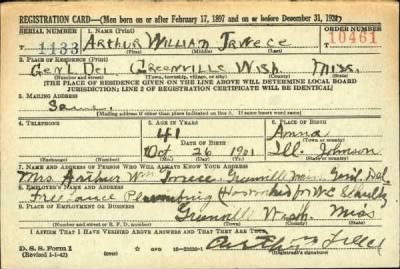 REGISTRATION CARD—(Men born on or after February 17, 1897 and on or before December 31, 1921)
SERIAL NUMBER
1. NAME (Print)
ORDER NUMBER
1133
Arthur William
10461
(First) (Middle) (Last)
2. PLACE OF RESIDENCE (Print)
Genl Del. Greenville Wash. Miss.
(Number and street) (Town, township, village, or city) (County) (State)
[THE PLACE OF RESIDENCE GIVEN ON THE LINE ABOVE WILL DETERMINE LOCAL BOARD
JURISDICTION; LINE 2 OF REGISTRATION CERTIFICATE WILL BE IDENTICAL]
3. MAILING ADDRESS
Same.
[Mailing address if other than place indicated on line 2. If same insert word same]
4. TELEPHONE
5. AGE IN YEARS
6. PLACE OF BIRTH
41
Anna
DATE OF BIRTH
(Town or county)
Oct 26 1901
Ill. Johnson
(Exchange) (Number)
(Mo.) (Day) (Yr.)
(State or country)
7. NAME AND ADDRESS OF PERSON WHO WILL ALWAYS KNOW YOUR ADDRESS
Mrs. Arthur Wm Greenville Miss Genl. Del
8. EMPLOYER'S NAME AND ADDRESS
Free Lance Has worked for W.C.
9. PLACE OF EMPLOYMENT OR BUSINESS
Greenville Wash. Miss
(Number and street or R. F. D. number) (Town) (County) (State)
I AFFIRM THAT I HAVE VERIFIED ABOVE ANSWERS AND THAT THEY ARE TRUE.
D. S. S. Form 1
(Revised 1-1-42)
(over)
(Registrant's signature)